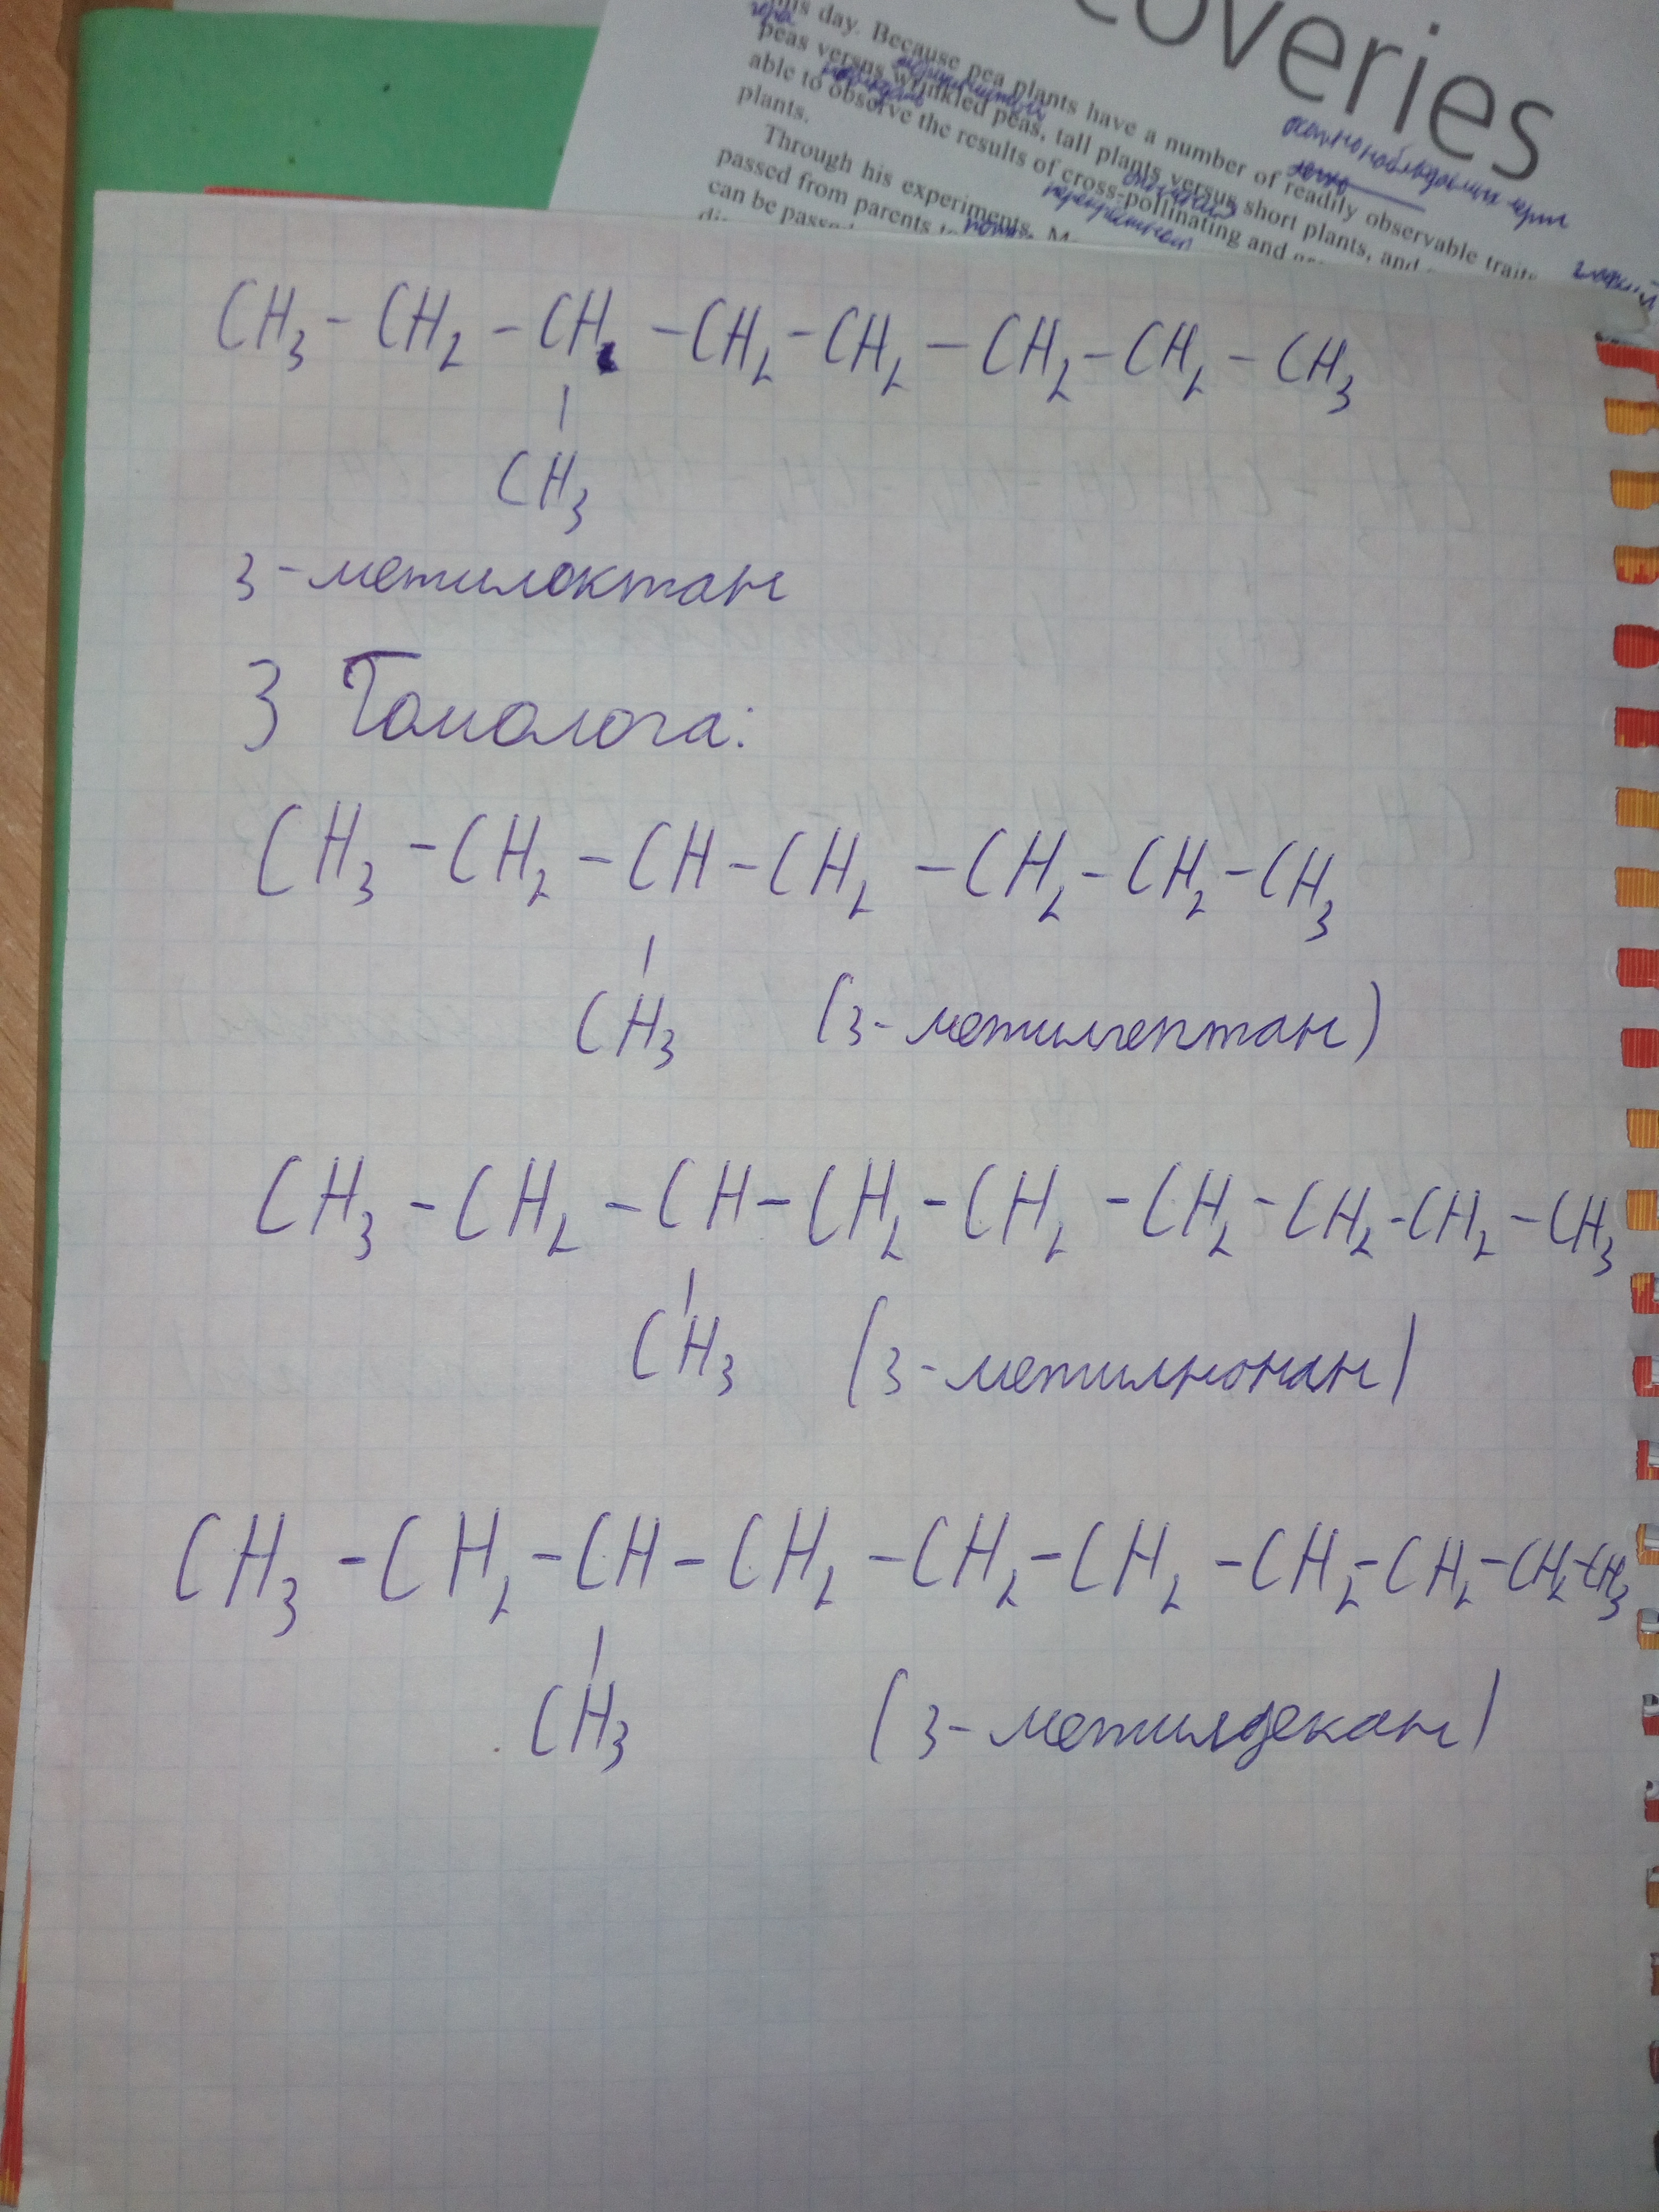 overies
is day. Because pea plants have a number of readily observable traits
peas versus wrinkled peas, tall plants versus short plants, and
able to observe the results of cross-pollinating and
plants.
Through his experiments,
passed from parents
can be passed
CH3 - CH2 - CH - CH2 - CH2 - CH2 - CH2 - CH3
CH3
3-метилоктан
3 Гомолога:
CH3 - CH2 - CH - CH2 - CH2 - CH2 - CH3
CH3 (3-метилгептан)
CH3 - CH2 - CH - CH2 - CH2 - CH2 - CH2 - CH2 - CH3
CH3 (3-метилнонан)
CH3 - CH2 - CH - CH2 - CH2 - CH2 - CH2 - CH2 - CH2 - CH3
CH3 (3-метилдекан)